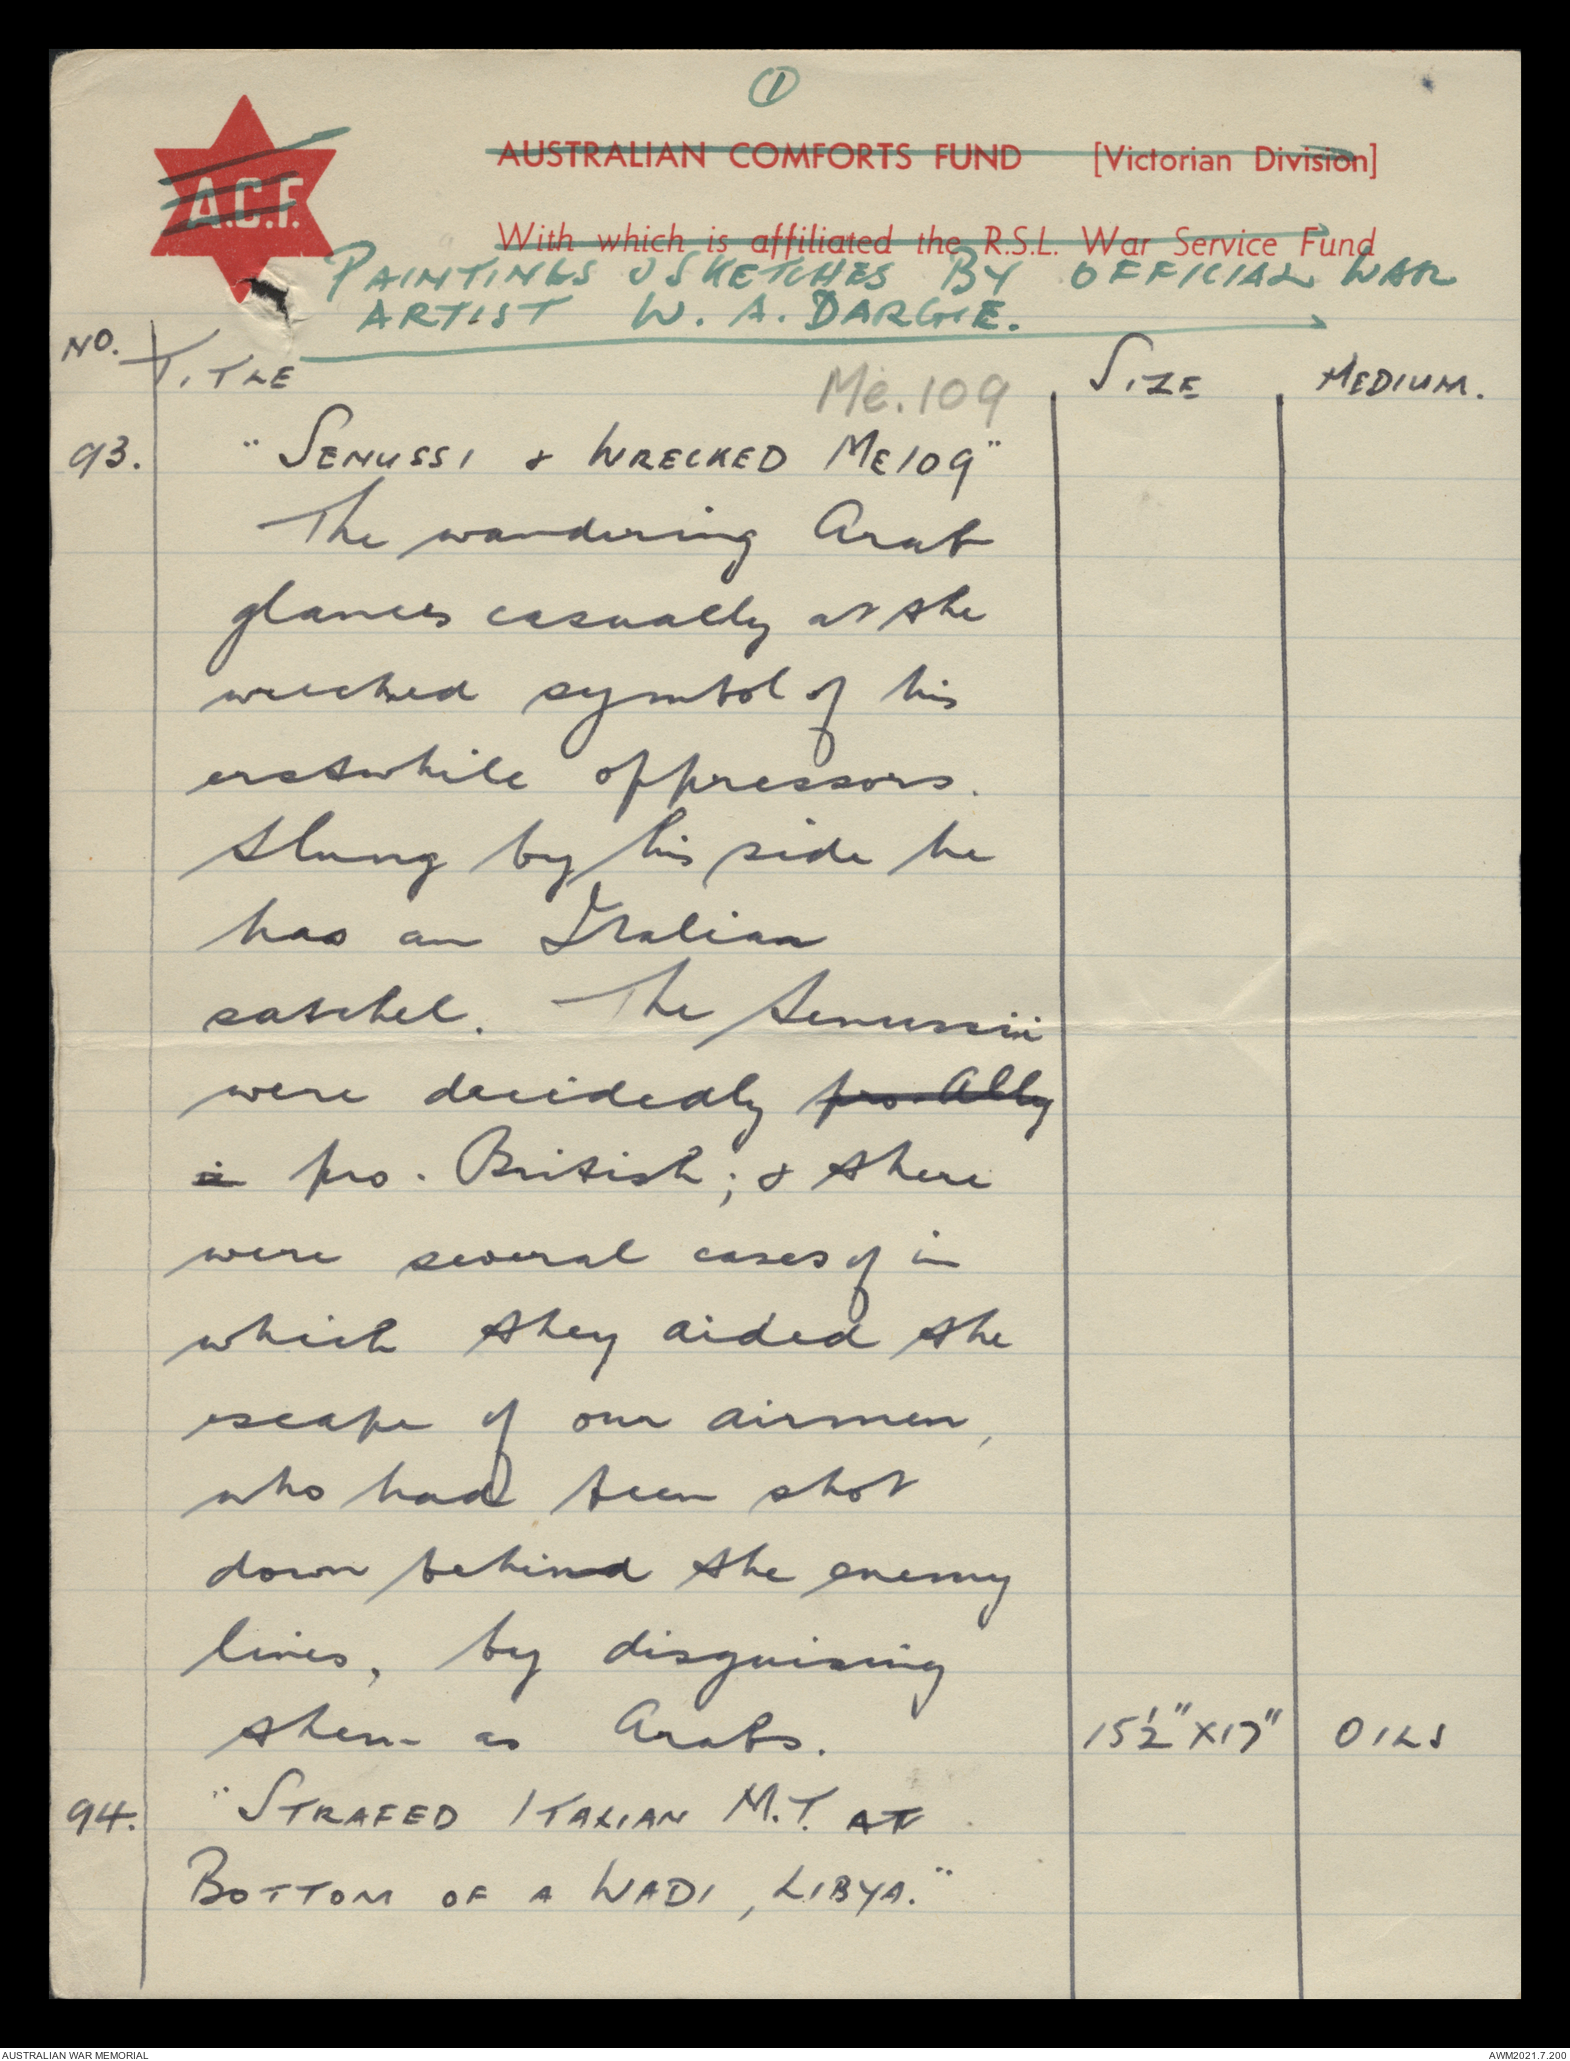 ①
A.C.F.
AUSTRALIAN COMFORTS FUND [Victorian Division]
With which is affiliated the R.S.L. War Service Fund
PAINTINGS & SKETCHES BY OFFICIAL WAR
ARTIST W. A. DARGIE.
NO. TITLE SIZE MEDIUM.
Me.109
93. "SENUSSI & WRECKED ME109"
The wandering Arab
glances casually at the
wrecked symbol of his
erstwhile oppressors.
Slung by his side he
has an Italian
satchel. The Senussii
were decidedly pro-Ally
is pro-British; & there
were several cases of in
which they aided the
escape of our airmen,
who had been shot
down behind the enemy
lines, by disguising
them as Arabs. 15½" X 17" OILS
94. "STRAFED ITALIAN M.T. AT
BOTTOM OF A WADI, LIBYA."
AUSTRALIAN WAR MEMORIAL AWM2021.7.200